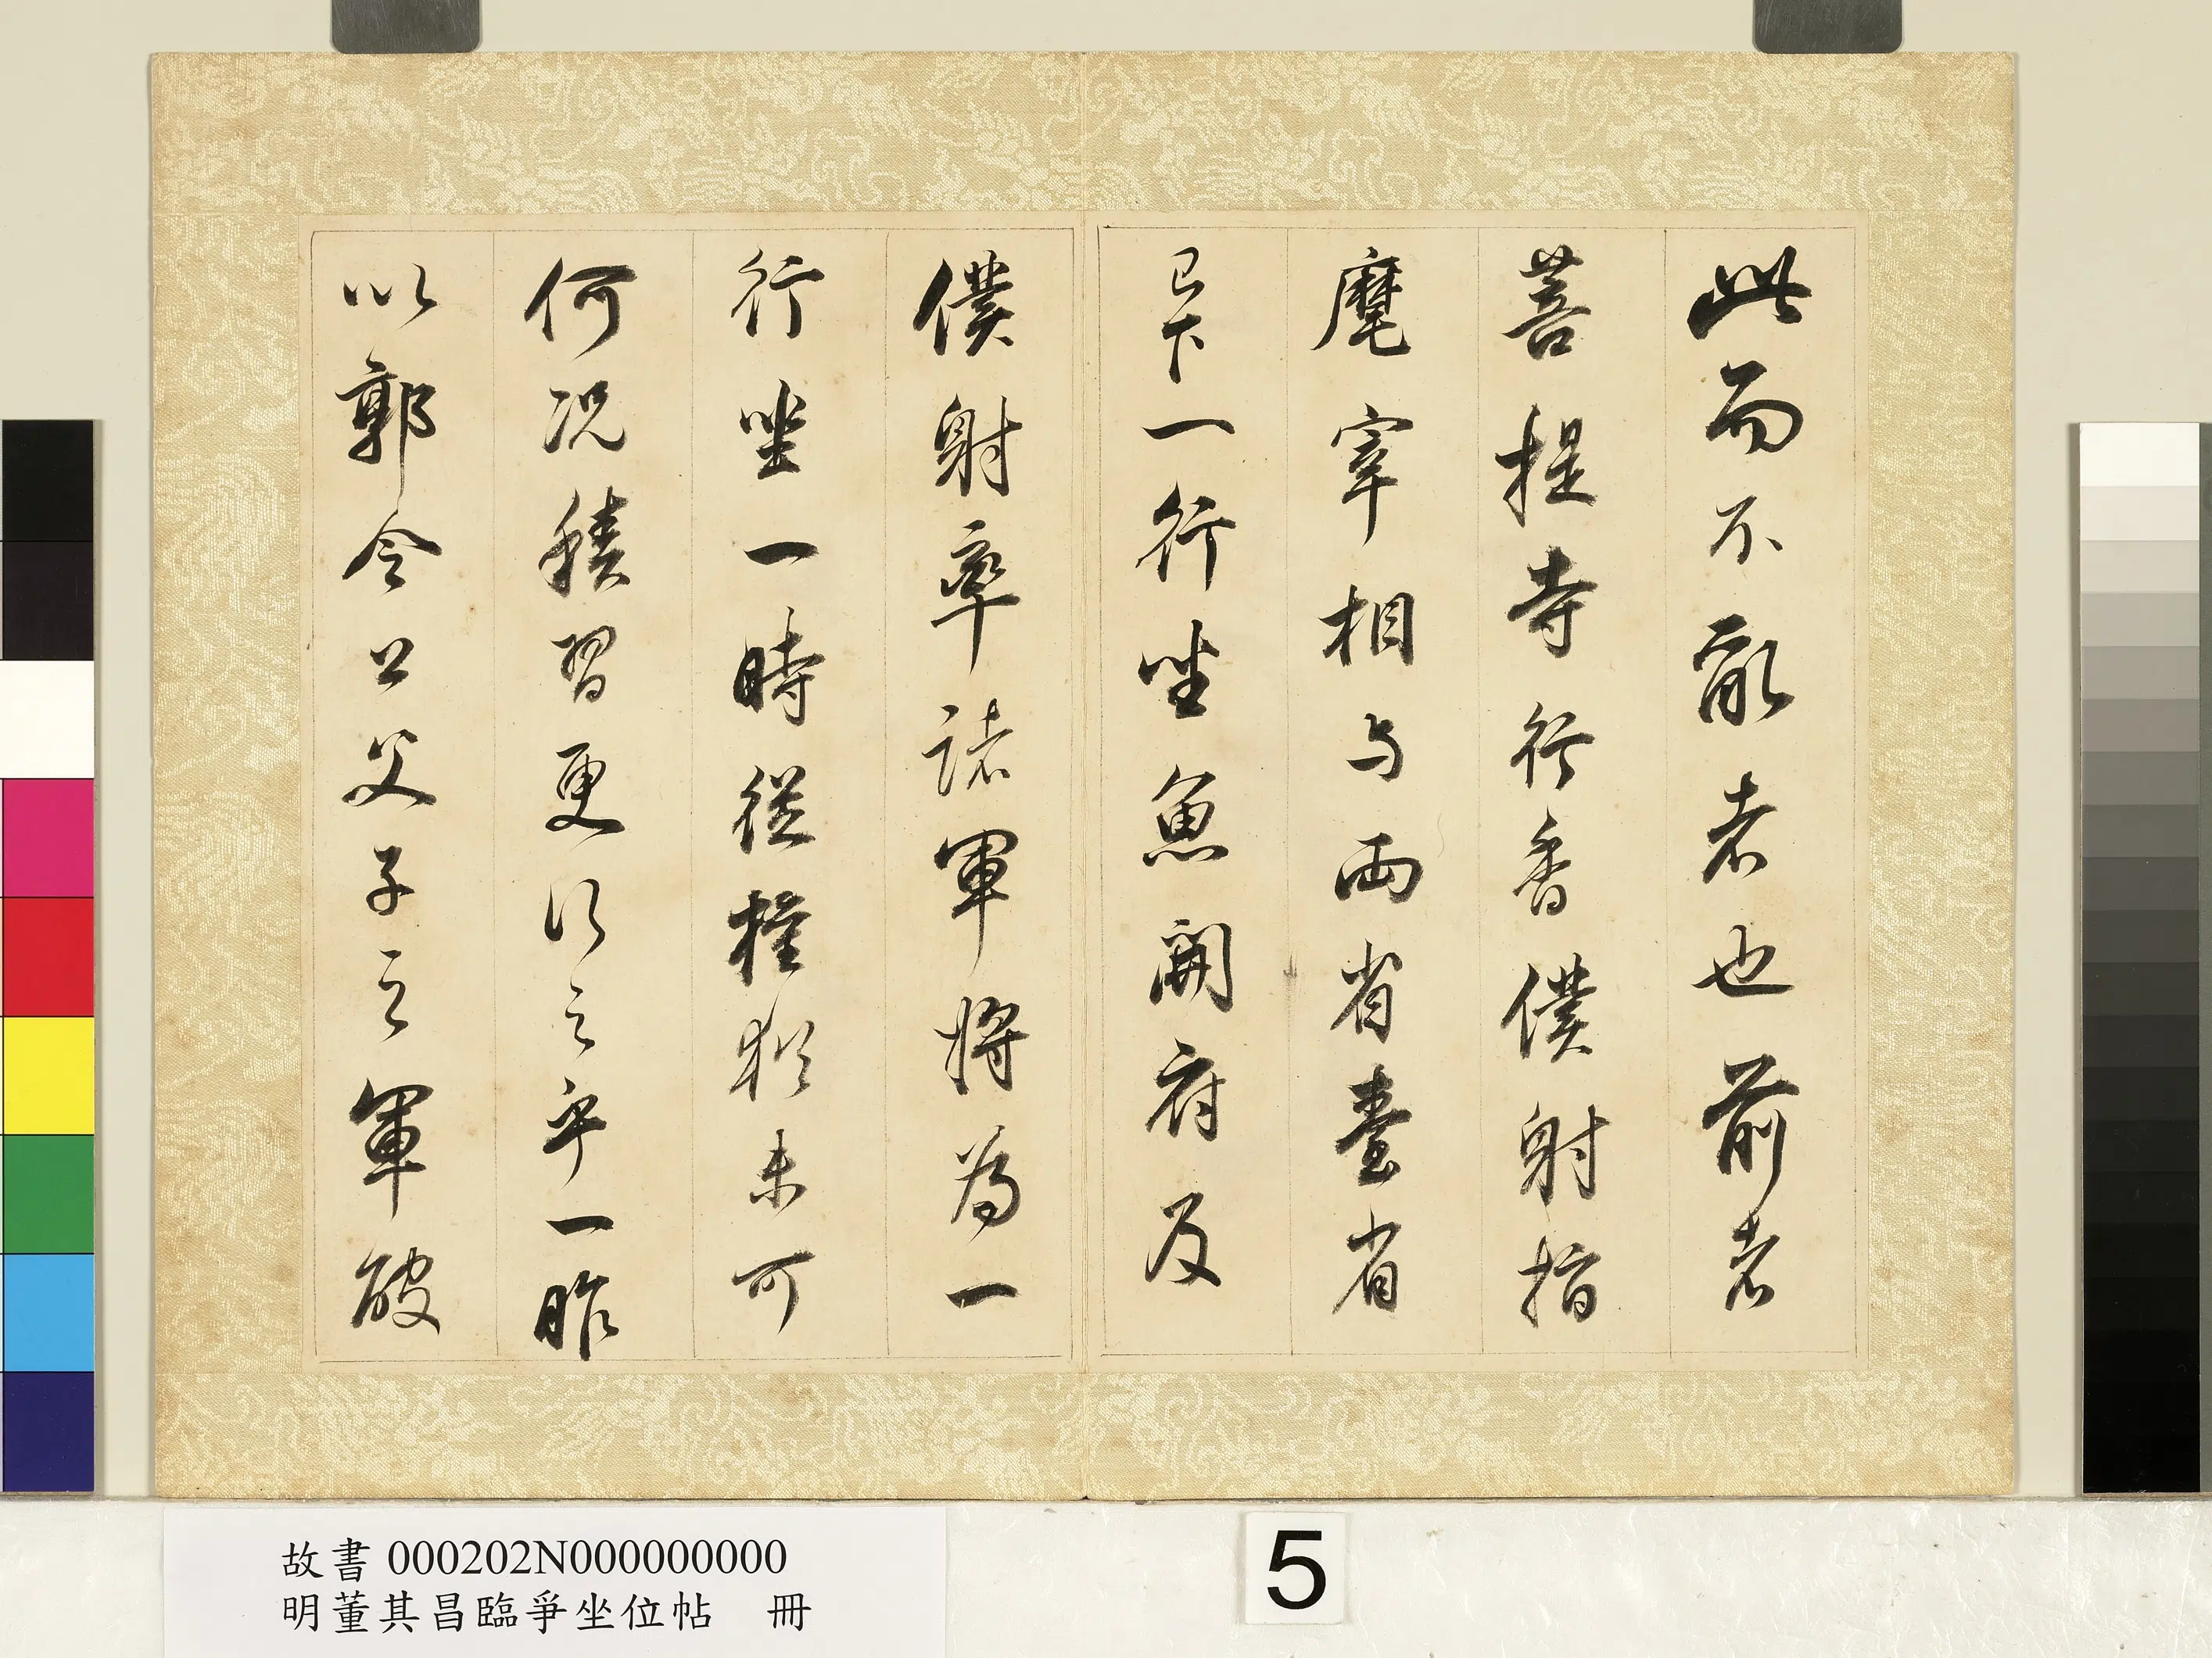 此而不敵者也前者
菩提寺行香僕射指
麾宰相与兩省臺省
已下一行坐魚開府及
僕射率諸軍將為一
行坐一時從權猶未可
何況積習更行之乎一昨
以郭令公父子之軍破
故書000202N000000000
明董其昌臨爭坐位帖 冊
5